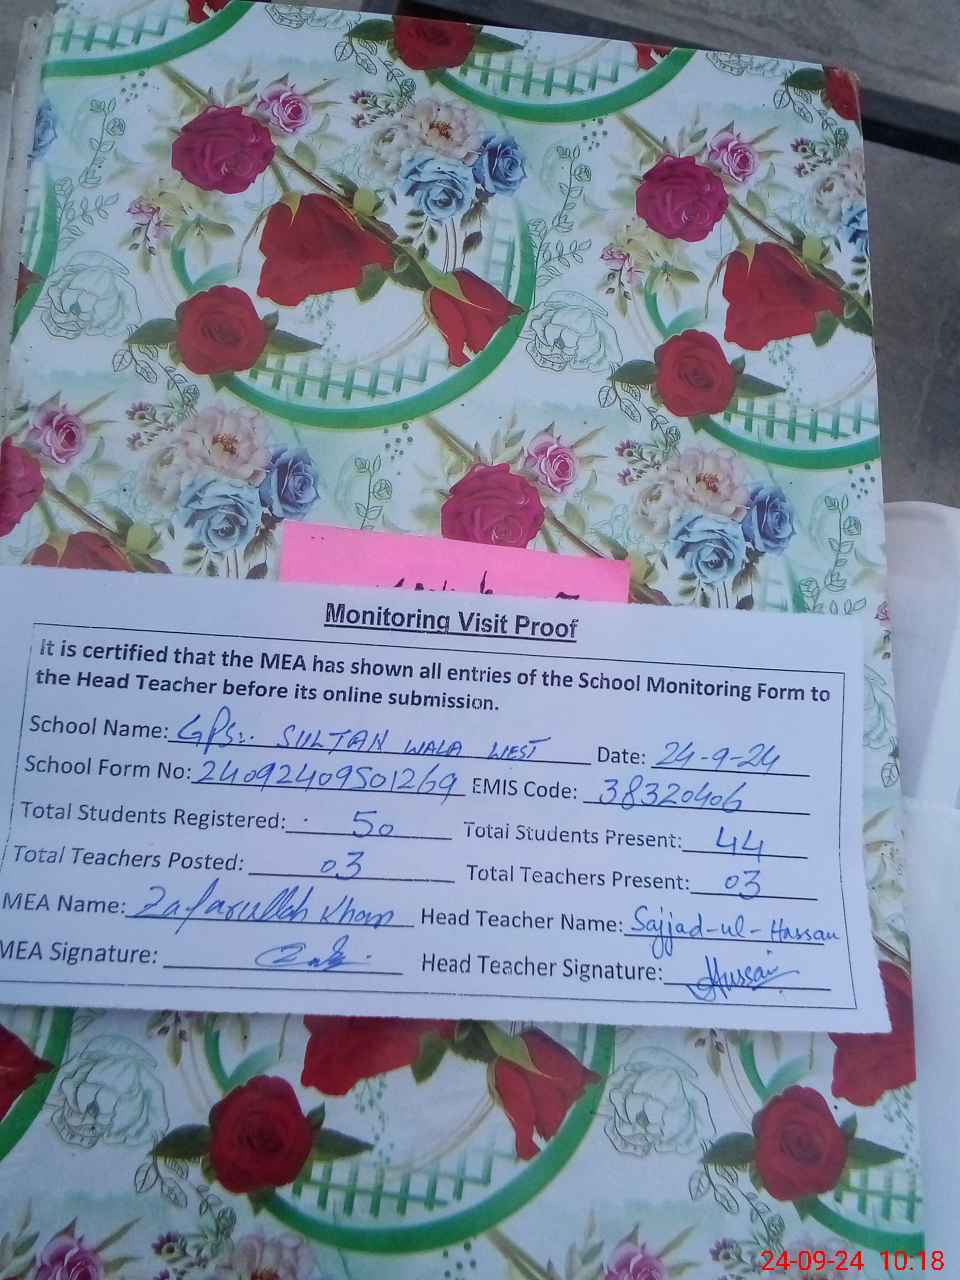 Monitoring Visit Proof
It is certified that the MEA has shown all entries of the School Monitoring Form to
the Head Teacher before its online submission.
School Name: GPS:. SULTAN WALA WEST Date: 24-9-24
School Form No: 24092409501269 EMIS Code: 38320406
Total Students Registered: 50 Total Students Present: 44
Total Teachers Posted: 03 Total Teachers Present: 03
MEA Name: Zafarullah Khan Head Teacher Name: Sajjad-ul-Hassan
MEA Signature: Head Teacher Signature: Hussain
24-09-24 10:18